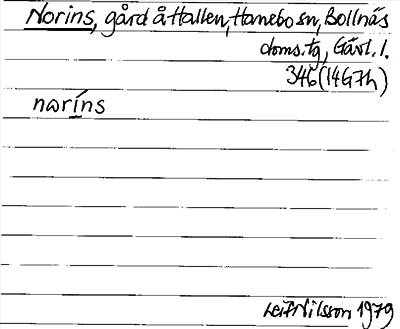 Norins, gård å Hallen, Hanebo sn, Bollnäs
doms.tg, Gävl. l.
346 (14G7h)
naríns
Leif Nilsson 1979